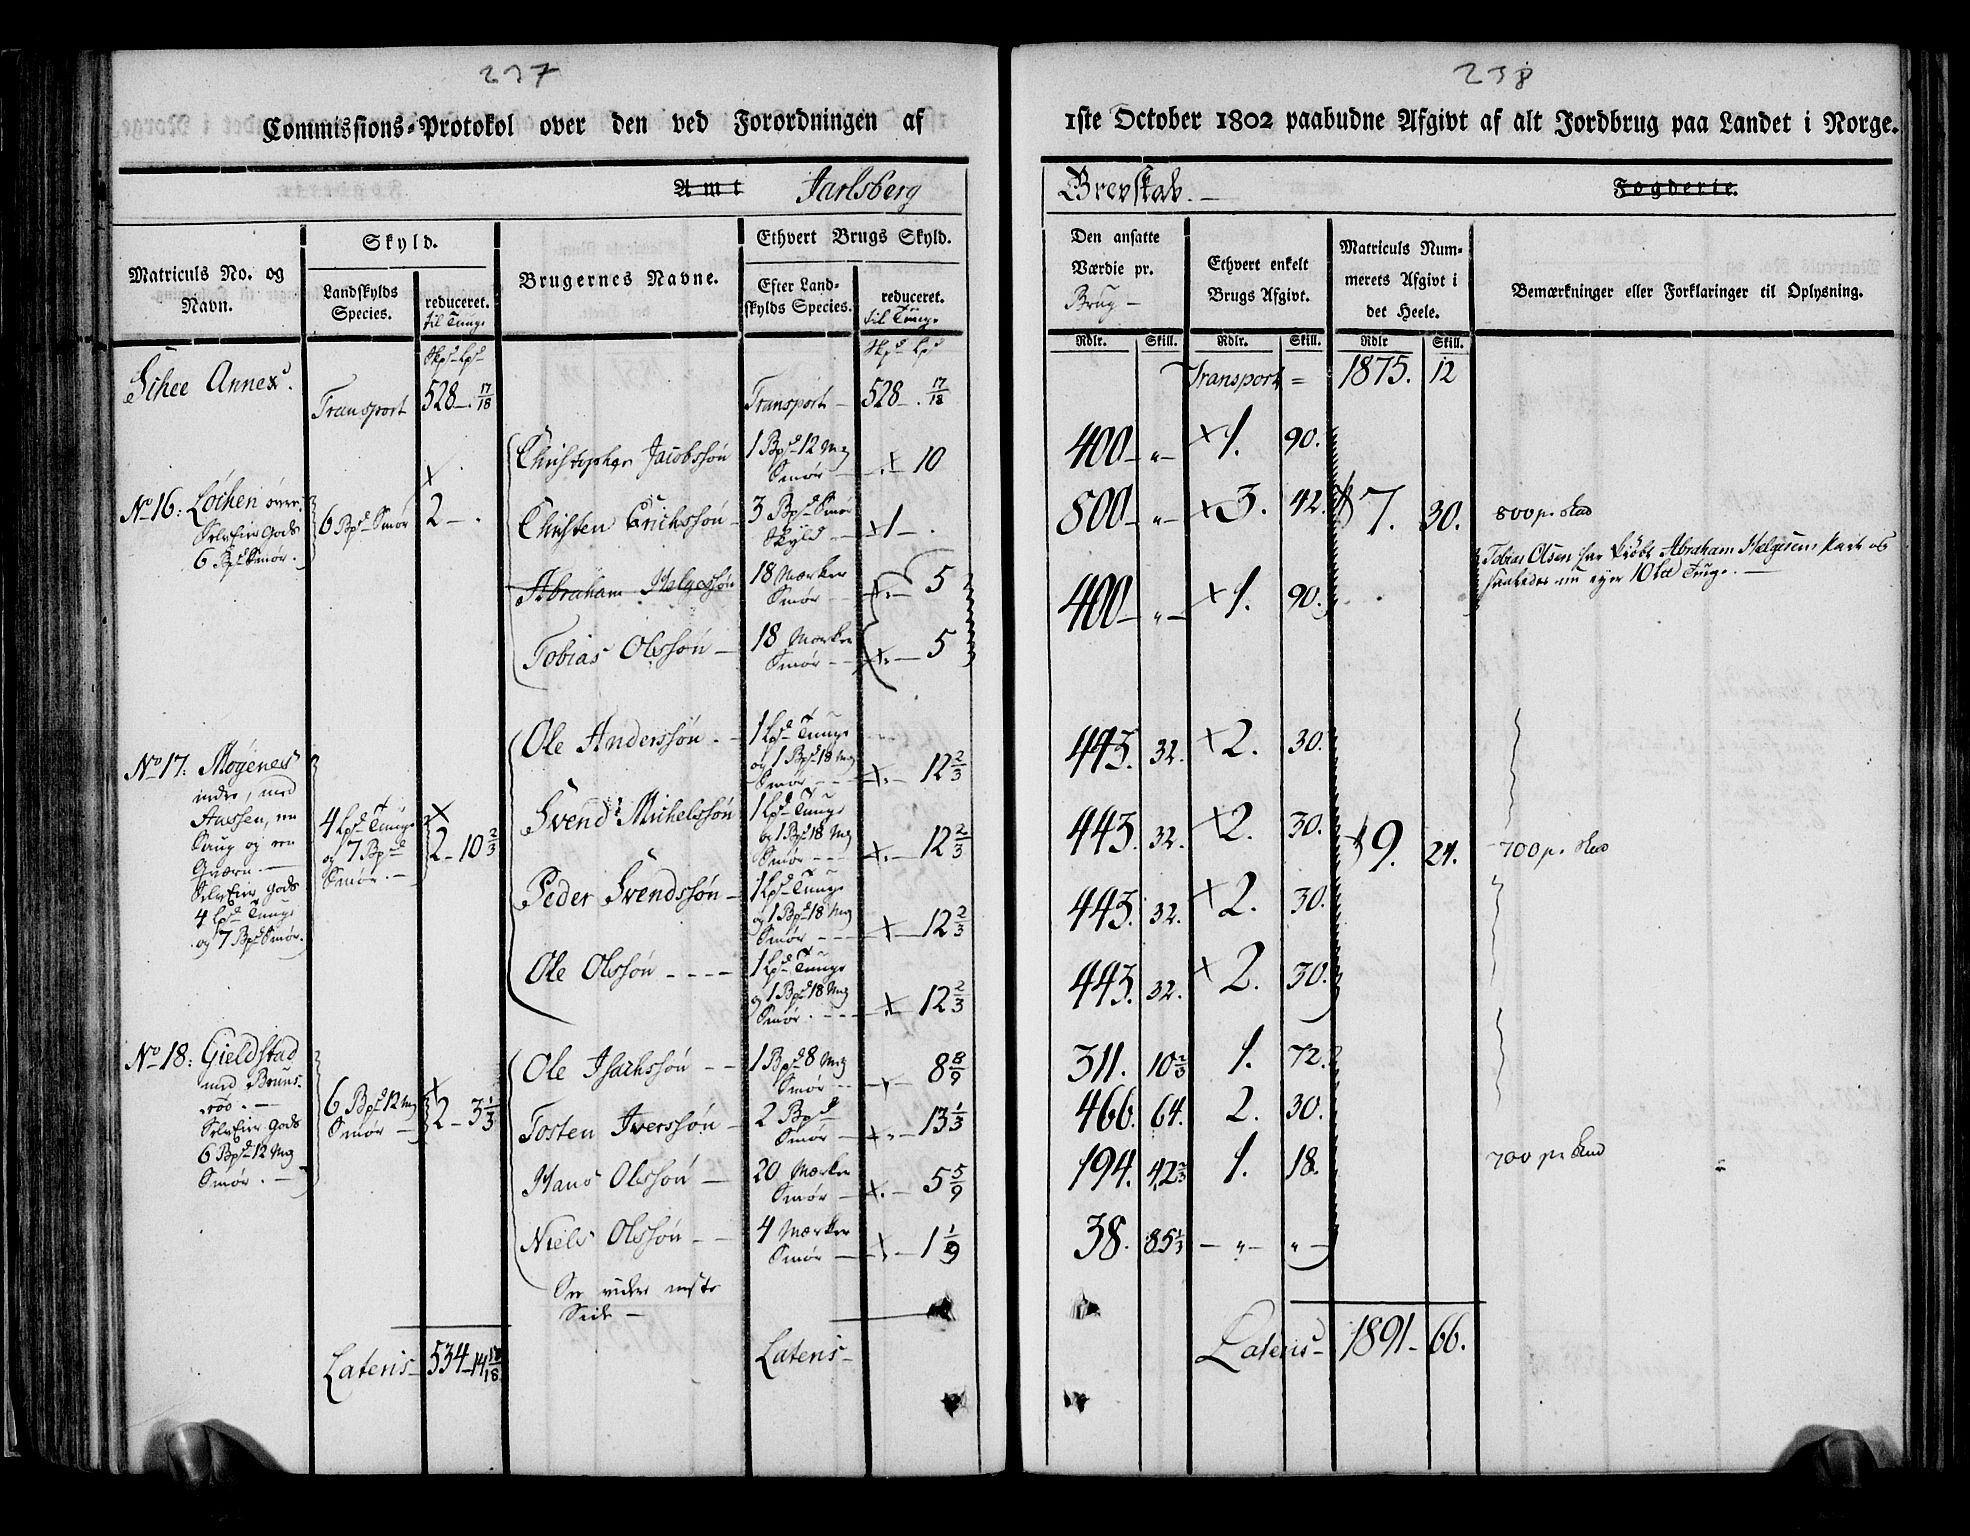 237
238
Commissions-Protokol over den ved Forordningen af
1ste October 1802 paabudne Afgivt af alt Jordbrug paa Landet i Norge.
Amt Jarlsberg
Grevskab. Fogderie.
Matriculs No. og Navn.
Skyld.
Landskylds Species.
reduceret. til Tunge
Brugernes Navne.
Ethvert Brugs Skyld.
Efter Landskylds Species.
reduceret. til Tunge
Den ansatte Værdie pr. Brug
Ethvert enkelt Brugs Afgivt.
Matriculs Nummerets Afgivt i det Heele.
Bemærkninger eller Forklaringer til Oplysning.
Skpd Lpd
Skpd Lpd
Rdlr. Skill. Rdlr. Skill. Rdlr Skill.
Annex.
Transport 528 - . 17/18
Transport - 528 - . 17/18
Transport = 1875. 12
Christopher Jacobssøn 1 Bpd 12 Mg Smør 10
400 „ 1. 90.
No 16: Løchen øvre
SelvEier Gods
6 Bpd Smør.
6 Bpd Smør 2 - .
Christen Erichssøn 3 Bpd Smør Skyld 1 - .
800 „ 3. 42. 7. 30. 800 p. Stad
Abraham Helgessøn 18 Mærker Smør 5
Tobias Olsen har kiøbt Abraham Helgesens Part og
saaledes nu eyer 10 Ld Tunge.
400 „ 1. 90.
Tobias Olssøn 18 Mærker Smør 5
No 17: Møgenes
indre, med
en
Saug og en
Qværn.
SelvEier Gods
4 Lpd Tunge
og 7 Bpd Smør.
4 Lpd Tunge
og 7 Bpd
Smør.
2 - 10 2/3
Ole Anderssøn 1 Lpd Tunge og 1 Bpd 18 Mg Smør 12 2/3
443. 32. 2. 30.
Svend Michelssøn 1 Lpd Tunge og 1 Bpd 18 Mg Smør 12 2/3
443. 32. 2. 30. 9. 24. 700 p. Stad
Peder Svendssøn 1 Lpd Tunge og 1 Bpd 18 Mg Smør 12 2/3
443. 32. 2. 30.
Ole Olssøn 1 Lpd Tunge og 1 Bpd 18 Mg Smør. 12 2/3
443. 32. 2. 30.
No 18: Gieldstad
med Bruns-
rød.
SelvEier Gods
6 Bpd 12 Mg
Smør.
6 Bpd 12 Mg
Smør
2 - 3 1/3
Ole Isachssøn 1 Bpd 8 Mg Smør 8 8/9
311. 10 2/3 1. 72.
Tosten Iverssøn 2 Bpd Smør 13 1/3
466. 64. 2. 30.
Hans Olssøn 20 Mærker Smør 5 5/9
194. 42 2/3 1. 18. 700 pr Stad
Niels Olssøn 4 Mærker Smør 1 1/9
38. 85 1/3 - „ - „ -
See videre næste
Side
Lateris 534 - 14 17/18
Lateris
Lateris 1891 - 66.